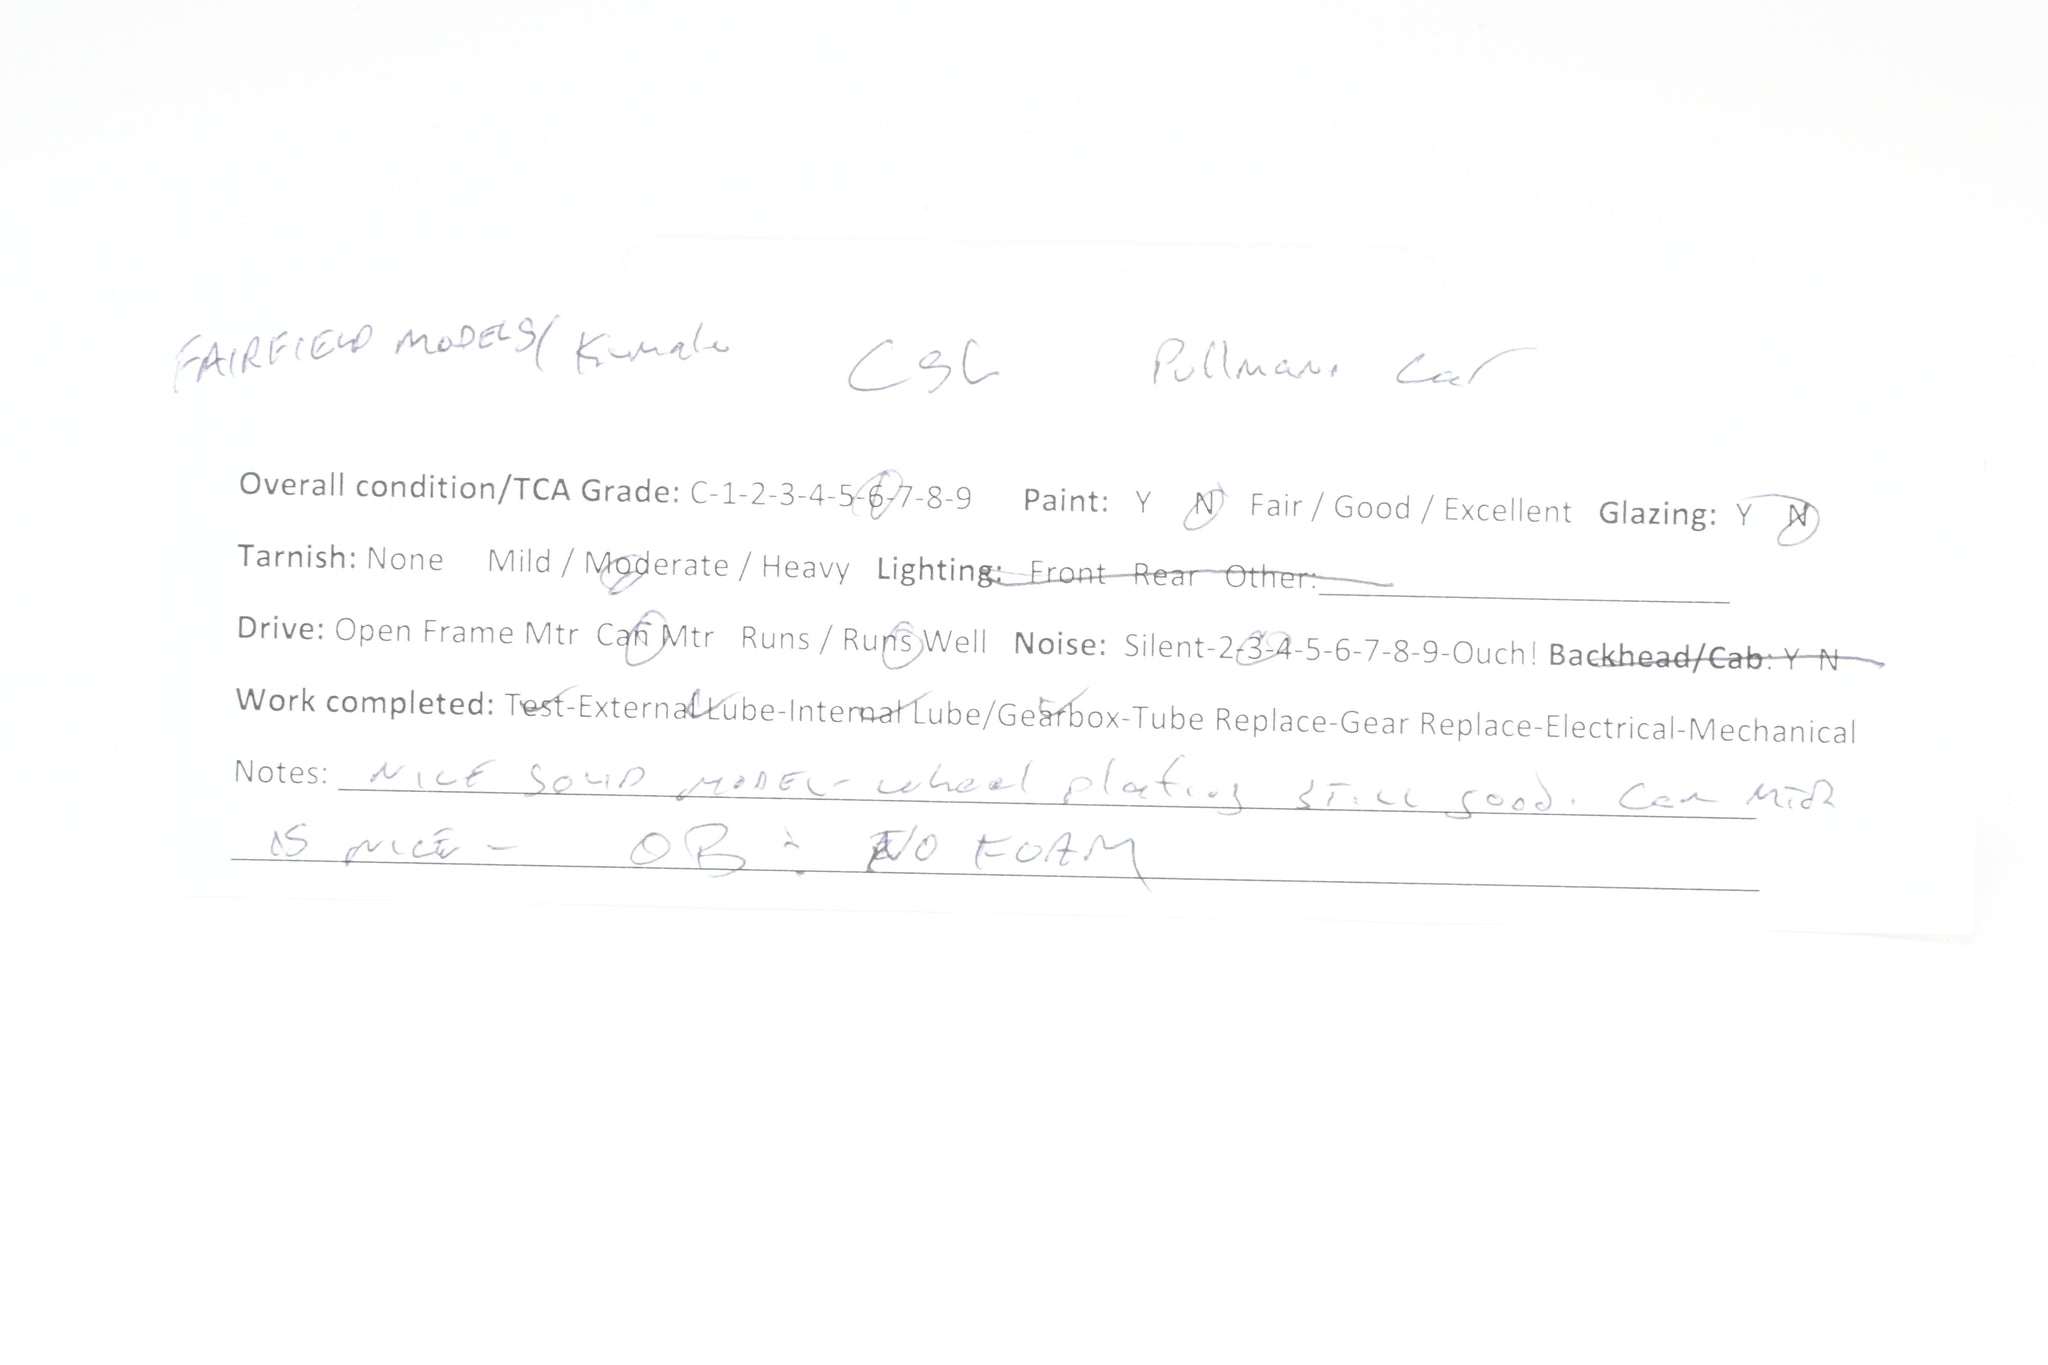 FAIRFIELD MODELS/ Kumata CSL Pullman Car
Overall condition/TCA Grade: C-1-2-3-4-5-6-7-8-9 Paint: Y N Fair / Good / Excellent Glazing: Y N
Tarnish: None Mild / Moderate / Heavy Lighting: Front Rear Other:
Drive: Open Frame Mtr Can Mtr Runs / Runs Well Noise: Silent-2-3-4-5-6-7-8-9-Ouch! Backhead/Cab: Y N
Work completed: Test-External Lube-Internal Lube/Gearbox-Tube Replace-Gear Replace-Electrical-Mechanical
Notes: NICE SOLID MODEL- wheel plating STILL good. Can MTR
IS NICE - OB: NO FOAM